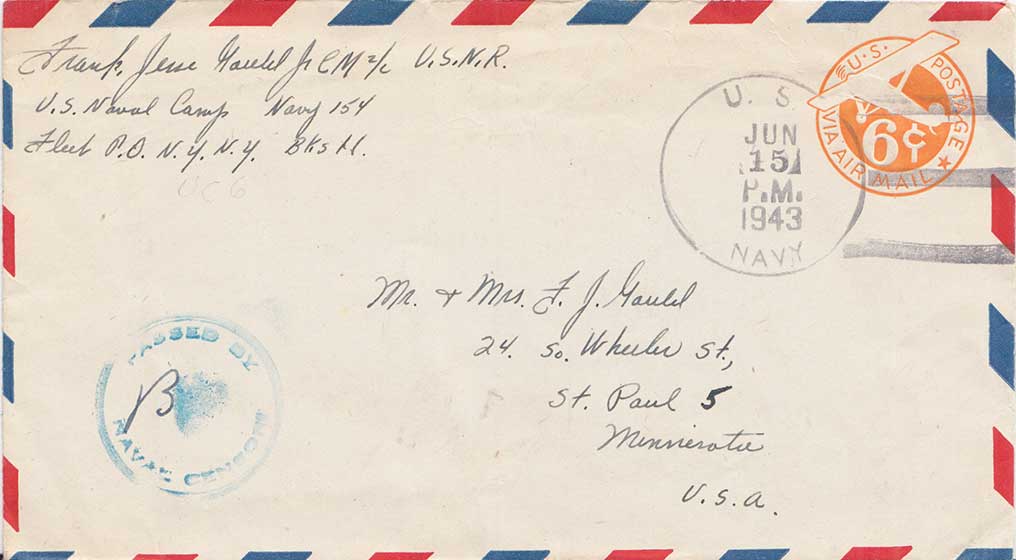 Frank Jesse Gould Jr CM 2/c U.S.N.R.
U.S. Naval Camp Navy 154
Fleet P.O. N.Y. N.Y. Bks H.
U.S. POSTAGE
6¢
VIA AIR MAIL
U. S.
JUN
15
P.M.
1943
NAVY
Mr. & Mrs. F. J. Gould
24. So. Wheeler St.,
St. Paul 5
Minnesota
U.S.A.
PASSED BY
B
NAVAL CENSOR